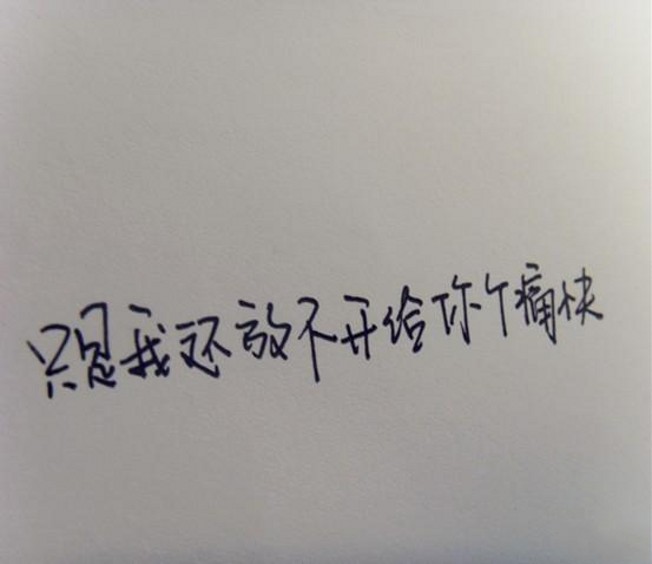 只是我还放不开给你个痛快